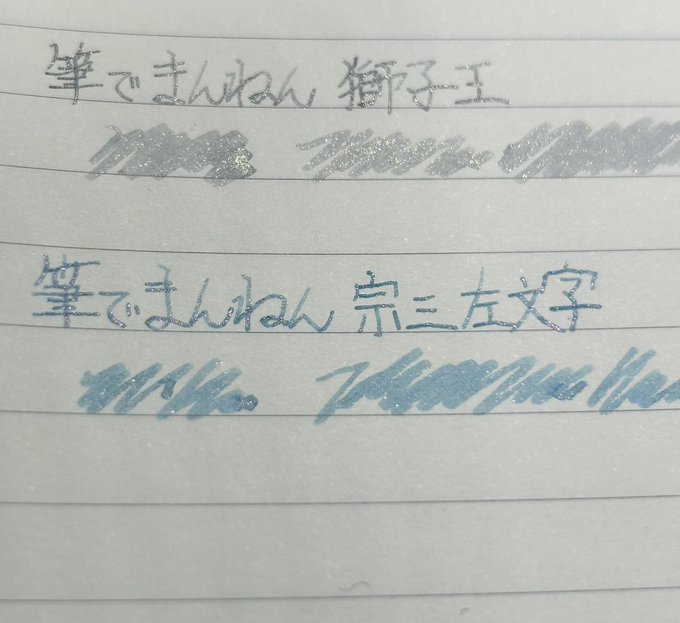 筆でまんねん 獅子王
筆でまんねん 宗三左文字